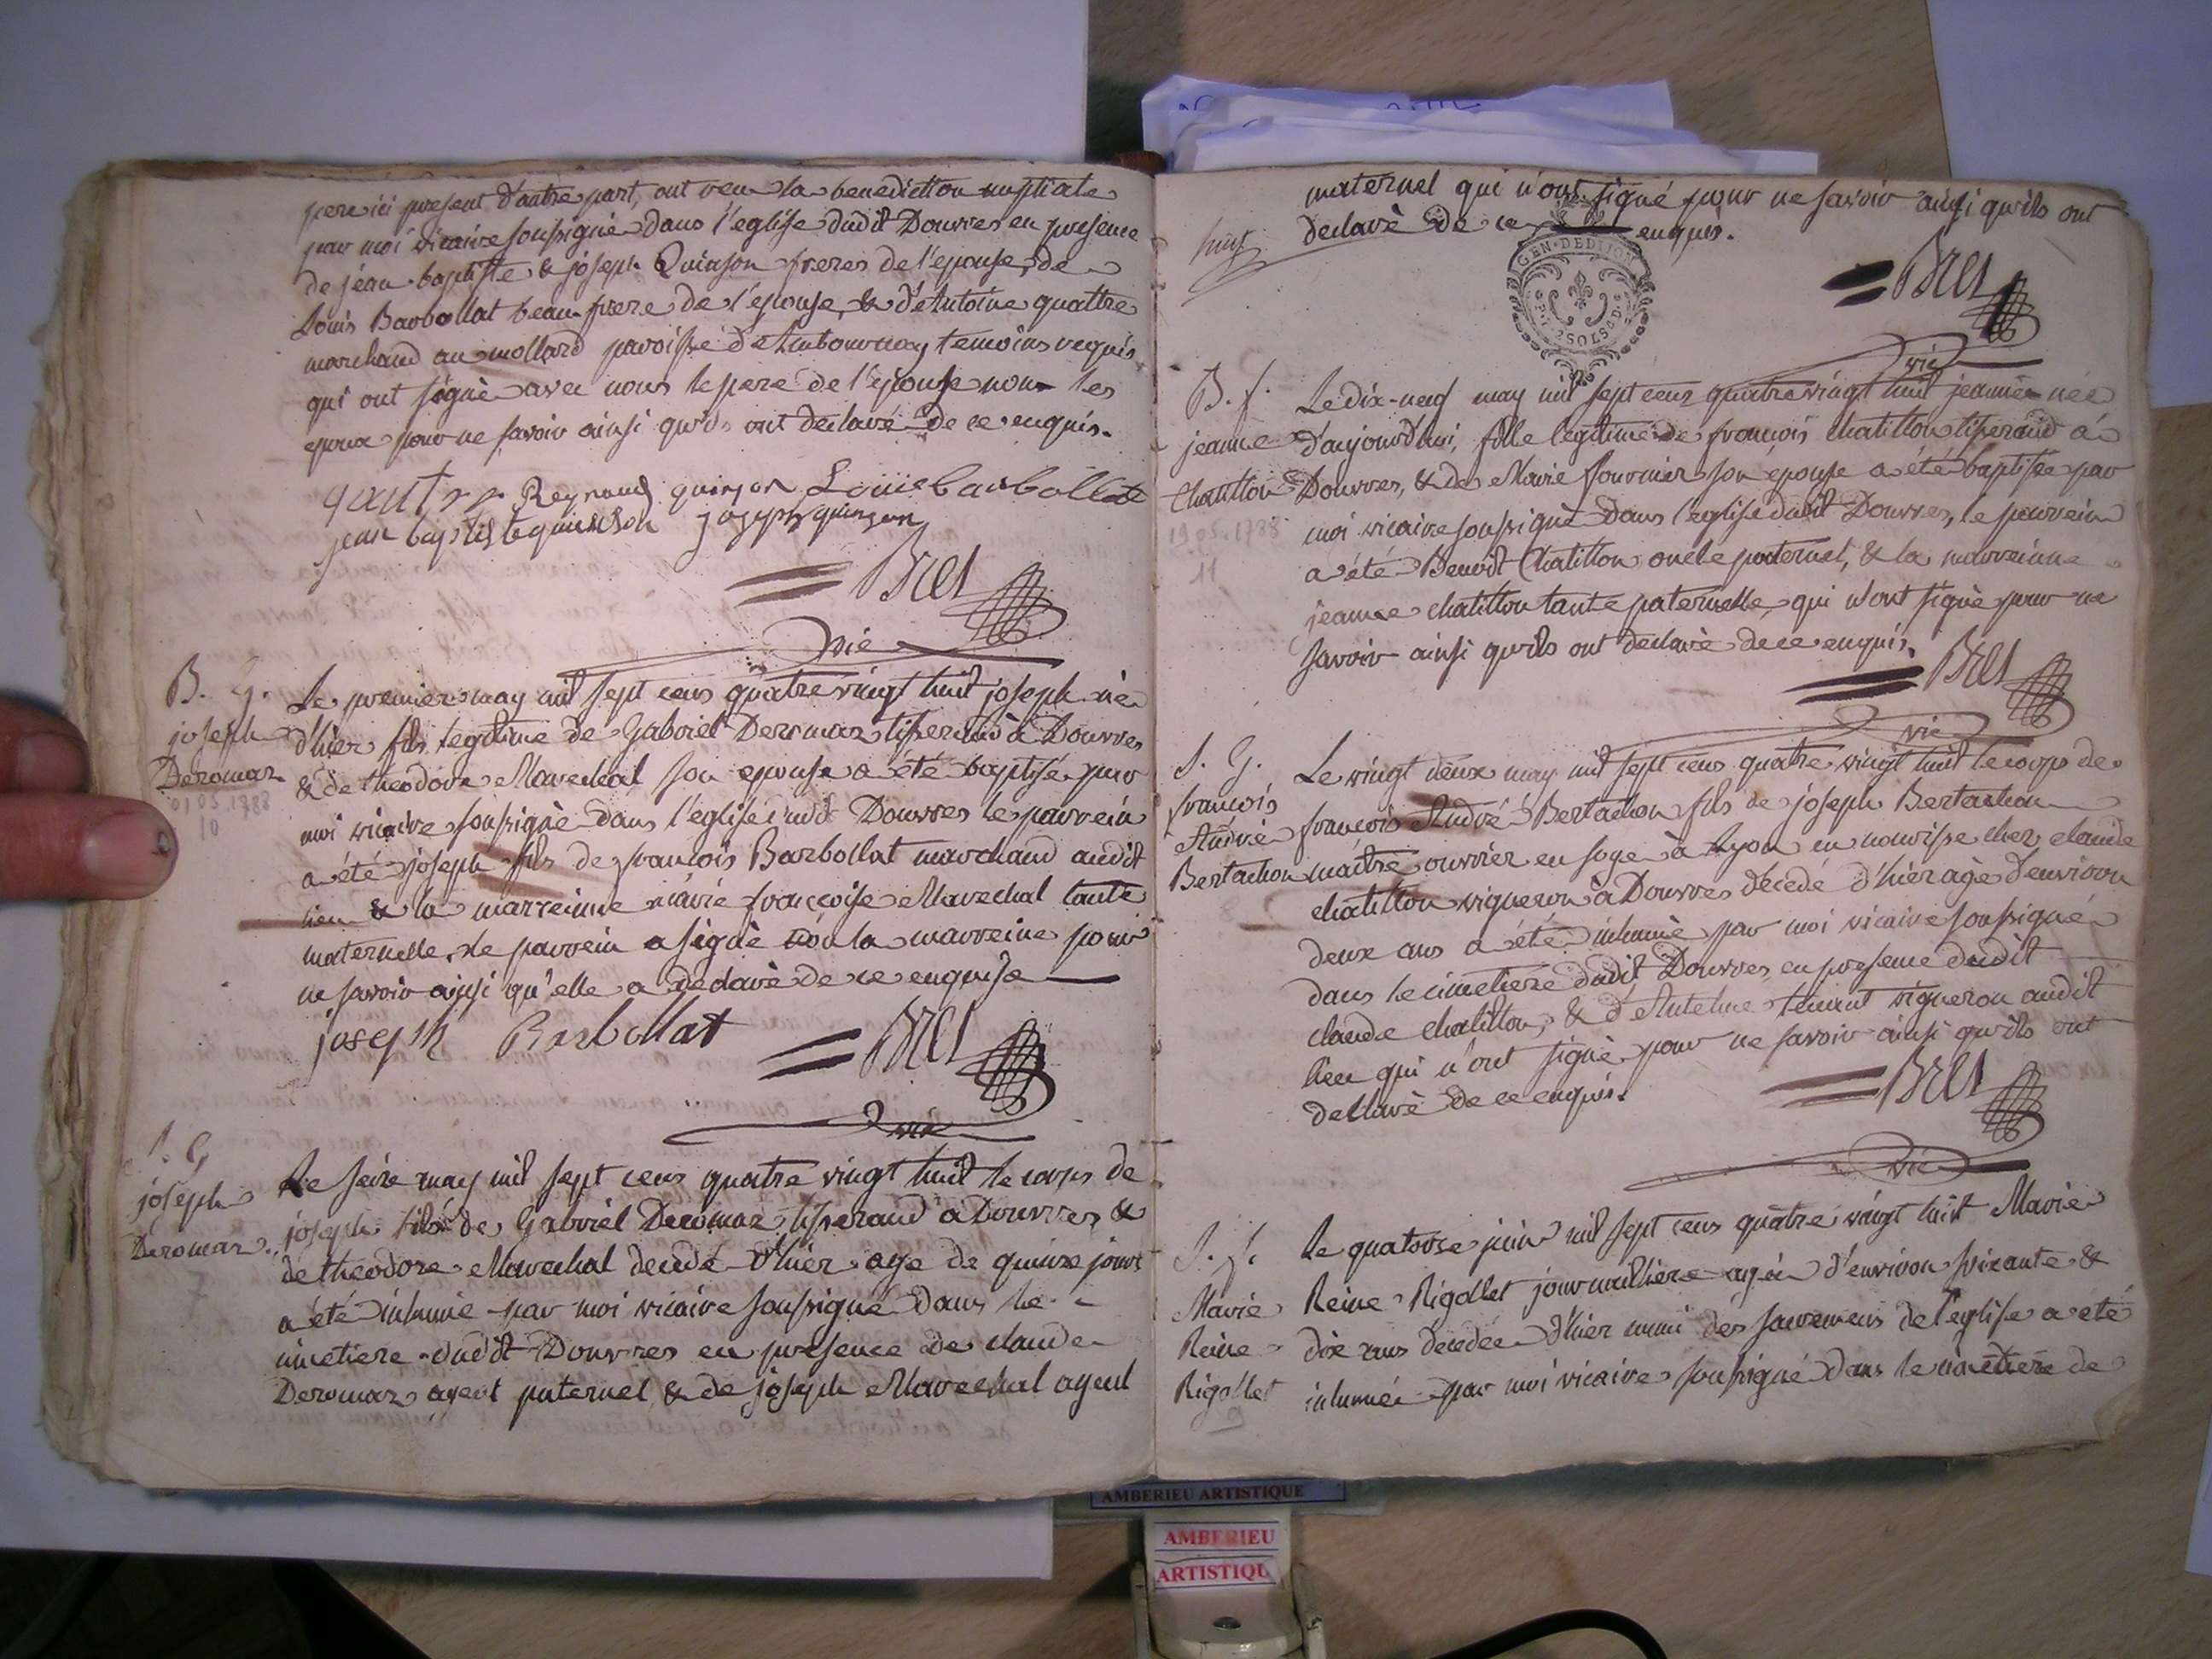 pere ici present d'autre part, ont recu la benediction nuptiale
par moi vicaire soussigné dans l'eglise dudit Douvres en presence
de jean baptiste & joseph Quinson freres de l'epouse, de
Louis Barbollat beau-frere de l'epouse, & d'Antoine quattre
marchand au mollard paroisse d'Ambournay temoins requis
qui ont signé avec nous le pere de l'epouse non les
epoux pour ne savoir ainsi qu'ils ont declaré de ce enquis.
Reynaud quinson Louis barbollat
jean baptiste quinson joseph quinson
Bret
vic
B. G.
joseph
Deromas
01 05.1788
10
Le premier may mil sept cens quatre vingt huit joseph né
d'hier fils legitime de Gabriel Deromas tisserand à Douvres
& de theodore Marechal son epouse a été baptisé par
moi vicaire soussigné dans l'eglise dudit Douvres le parrein
a été joseph fils de francois Barbollat marchand audit
lieu & la marreinne marie francoise Marechal tante
maternelle, le parrein a signé non la marreine pour
ne savoir ainsi qu'elle a declaré de ce enquise
joseph Barbollat
Bret
vic
S. G
joseph
Deromas.
7
Le seize may mil sept cens quatre vingt huit le corps de
joseph fils de Gabriel Deromas tisserand à Douvres &
de theodore Marechal decedé d'hier age de quinze jours
a été inhumé par moi vicaire soussigné dans le
cimetiere dudit Douvres en presence de claude
Deromas ayeul paternel & de joseph Marechal ayeul
maternel qui n'ont signé pour ne savoir ainsi qu'ils ont
declaré de ce enquis.
huit
GEN·DE DIJON
SOLS
Bret
vic
B. f.
jeanne
Chatillon
19 05.1788
11
Le dix-neuf may mil sept cens quatre vingt huit jeanne née
d'aujourd'hui, fille legitime de francois Chatillon tisserand à
Douvres, & de Marie fournier son épouse a été baptisée par
moi vicaire soussigné dans l'eglise dudit Douvres, le parrein
a été Benoit Chatillon oncle paternel, & la marreinne
jeanne chatillon tante paternelle, qui n'ont signé pour ne
savoir ainsi qu'ils ont declaré de ce enquis.
Bret
vic
S. G.
francois
André
Bertachon
8
Le vingt deux may mil sept cens quatre vingt huit le corps de
francois André Bertachon fils de joseph Bertachon
maitre ouvrier en soye à Lyon en nourisse chez claude
chatillon vigneron à Douvres decedé d'hier agé d'environ
deux ans a été inhumé par moi vicaire soussigné
dans le cimetiere dudit Douvres en presence dudit
claude chatillon, & d'Antelme tenant vigneron audit
lieu qui n'ont signé pour ne savoir ainsi qu'ils ont
declaré de ce enquis.
Bret
vic
S. f.
Marie
Reine
Rigollet
9
Le quatorze juin mil sept cens quatre vingt huit Marie
Reine Rigollet journalliere agée d'environ soixante &
dix ans decedée d'hier muni des sacremens de l'eglise a été
inhumée par moi vicaire soussigné dans le cimetiere de
AMBERIEU ARTISTIQUE
AMBERIEU
ARTISTIQU